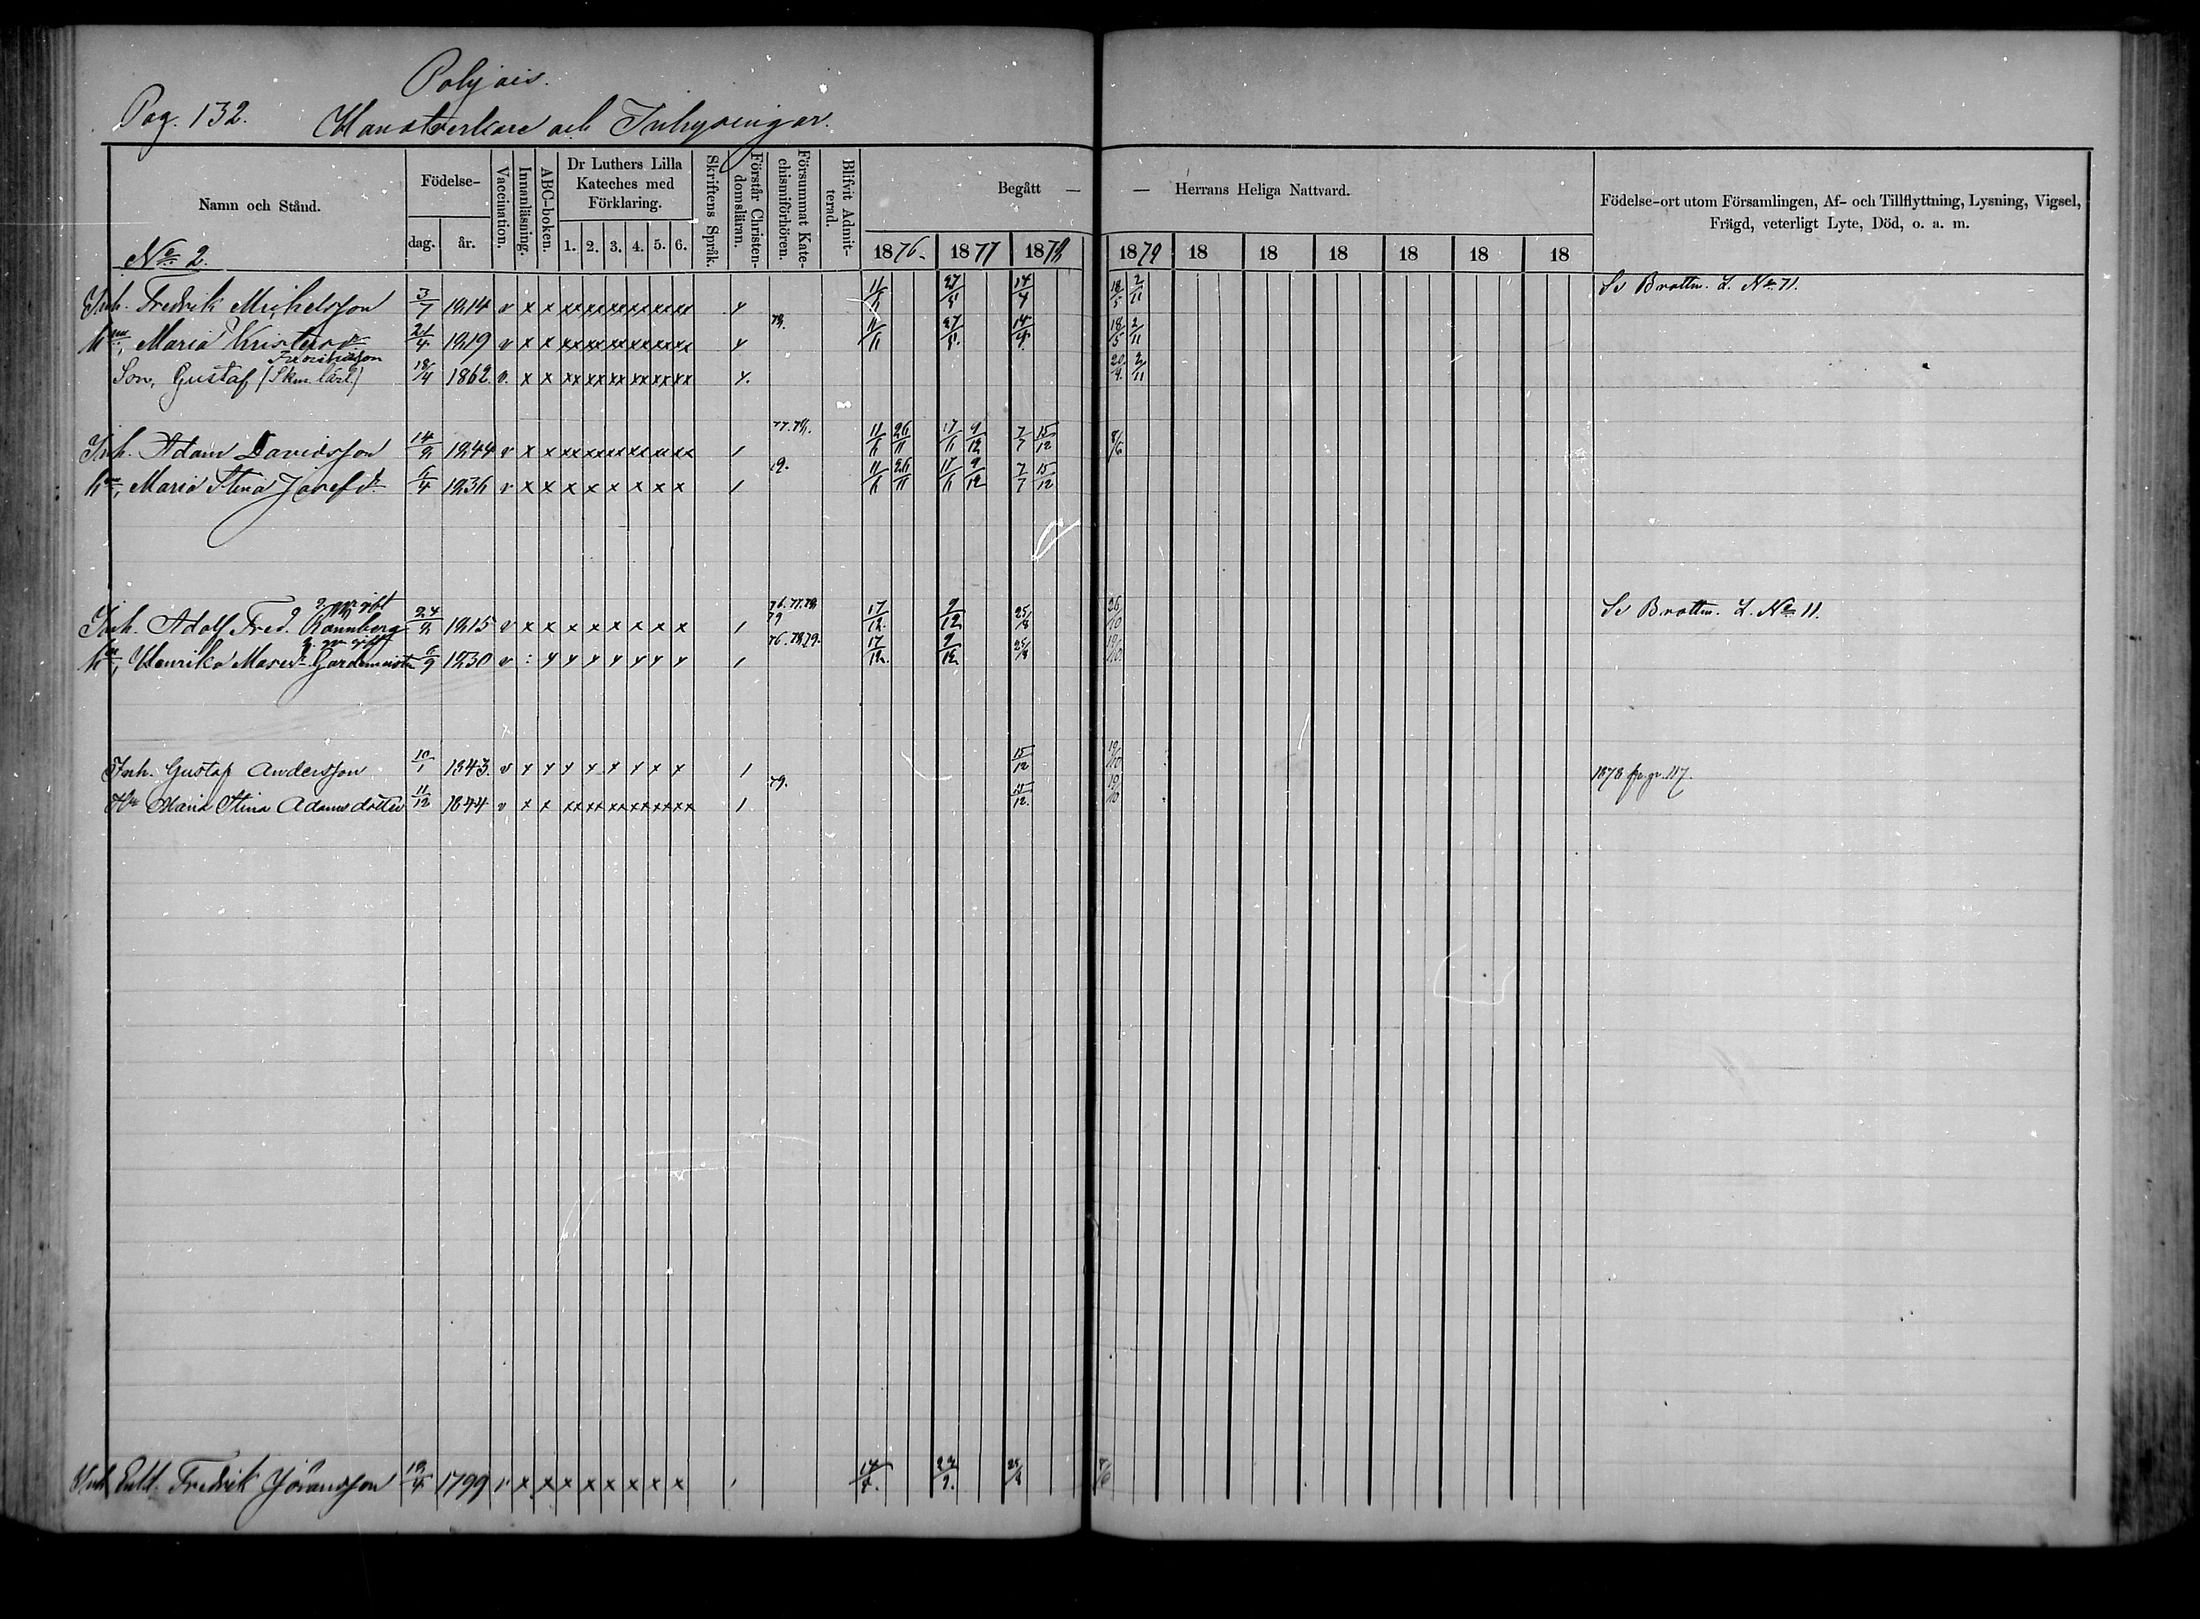 Pohjois.
Pag. 132. Handtverkare och Inhysingar.
Namn och Stånd.
Födelse-
dag. år.
Vaccination.
Innanläsning.
ABC-boken.
Dr Luthers Lilla Kateches med Förklaring.
1. 2. 3. 4. 5. 6.
Skriftens Språk.
Förstår Christendomsläran.
Försummat Katechismiförhören.
Blifvit Admitterad.
Begått — — Herrans Heliga Nattvard.
1876. 1877 1878 1879 18 18 18 18 18 18
Födelse-ort utom Församlingen, Af- och Tillflyttning, Lysning, Vigsel, Frägd, veterligt Lyte, Död, o. a. m.
No 2.
Inh. Fredrik Michelsson 3/7 1814 v x x xx xx xx xx xx xx 11/6 27/5 14/4 18/5 2/11
Hu, Maria Kristersdr 21/4 1819 v x x xx xx xx xx xx xx 78. 11/6 27/5 14/4 18/5 2/11
Fredriksson
Son, Gustaf (Skom. lärl.) 18/4 1862 v. x x xx xx xx xx xx xx 20/4 2/11
Inh. Adam Davidsson 14/2 1844 v x x xx xx xx xx xx xx 1 77.78. 11/6 26/11 17/6 9/12 7/7 15/12 8/6
Hu, Maria Stina Josefdr 6/4 1836 v x x x x x x x x 1 79. 11/6 26/11 17/6 9/12 7/7 15/12
Inh. Adolf Fred. Rönnberg 24/2 1815 v x x x x x x x x 1 76.77.78 79 17/12 9/12 25/8 26/10
Hu, Henrika Mariedr Gardemeister 6/9 1830 v 1 76.78.79. 17/12 9/12 25/8 19/10
Inh. Gustaf Andersson 10/1 1843 v x x x x x x x x 1 15/12 19/10 1878 fr. p. 117.
Hu Maria Stina Adamsdotter 11/12 1844 v x x xx xx xx xx xx xx 1 79. 15/12 19/10
Inh Enkl. Fredrik Göransson 19/4 1799 v x x x x x x x x 14/4 25/8 8/6